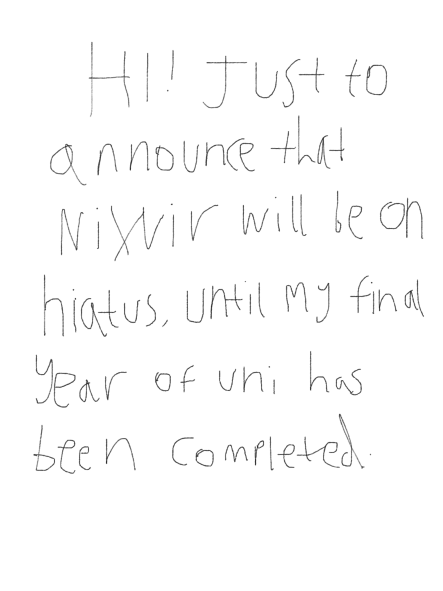 HI! Just to
announce that
Nixvir will be on
hiatus, until my final
year of uni has
been completed.